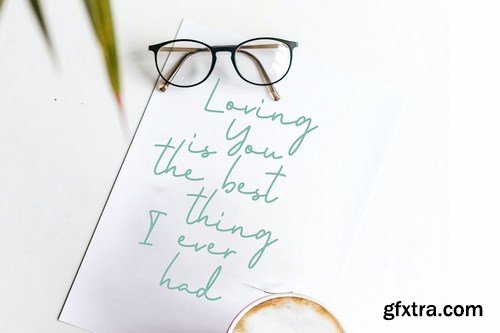 Loving
You
is
the best
thing
I ever
had
gfxtra.com